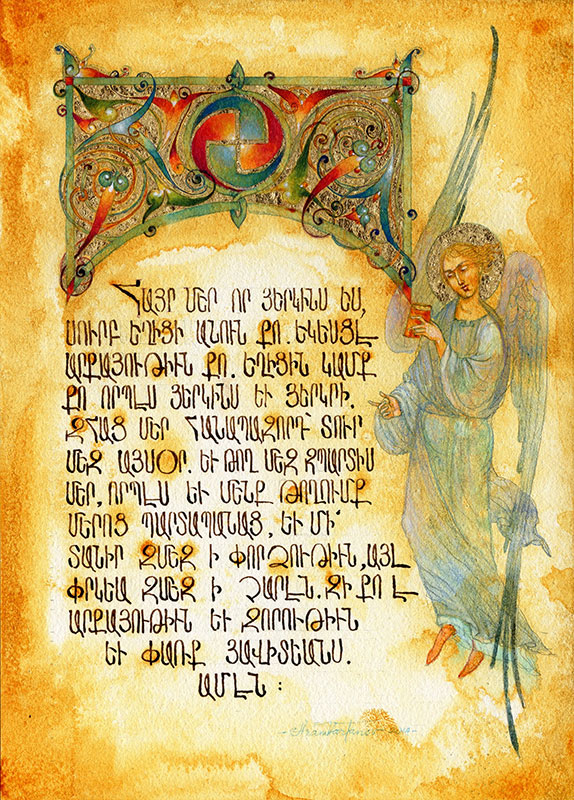 ՀԱՅՐ ՄԵՐ ՈՐ ՅԵՐԿԻՆՍ ԵՍ,
ՍՈՒՐԲ ԵՂԻՑԻ ԱՆՈՒՆ ՔՈ. ԵԿԵՍՑԷ
ԱՐՔԱՅՈՒԹԻՒՆ ՔՈ. ԵՂԻՑԻՆ ԿԱՄՔ
ՔՈ ՈՐՊԷՍ ՅԵՐԿԻՆՍ ԵՒ ՅԵՐԿՐԻ.
ԶՀԱՑ ՄԵՐ ՀԱՆԱՊԱԶՈՐԴ ՏՈՒՐ
ՄԵԶ ԱՅՍՕՐ. ԵՒ ԹՈՂ ՄԵԶ ԶՊԱՐՏԻՍ
ՄԵՐ, ՈՐՊԷՍ ԵՒ ՄԵՆՔ ԹՈՂՈՒՄՔ
ՄԵՐՈՑ ՊԱՐՏԱՊԱՆԱՑ, ԵՒ ՄԻ՛
ՏԱՆԻՐ ԶՄԵԶ Ի ՓՈՐՁՈՒԹԻՒՆ, ԱՅԼ
ՓՐԿԵԱ ԶՄԵԶ Ի ՉԱՐԷՆ. ԶԻ ՔՈ Է
ԱՐՔԱՅՈՒԹԻՒՆ ԵՒ ԶՕՐՈՒԹԻՒՆ
ԵՒ ՓԱՌՔ ՅԱՎԻՏԵԱՆՍ.
ԱՄԷՆ :